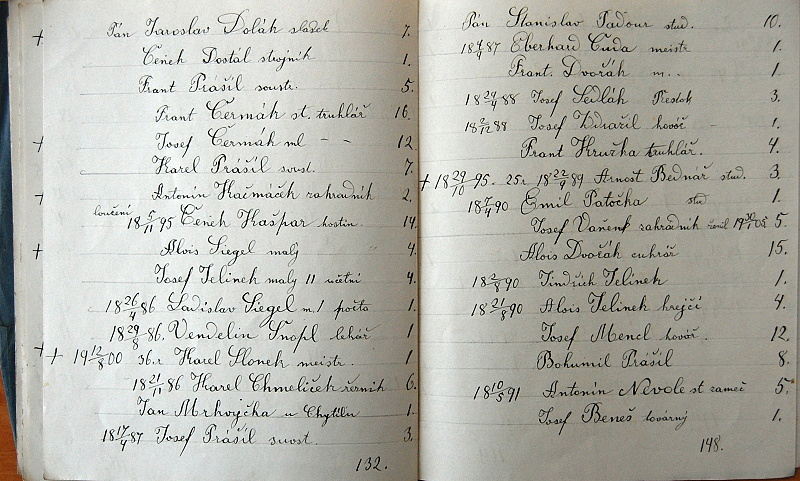 + Pán Jaroslav Dolák sládek 7.
Čeněk Dostál strojník 1.
Frant Prášil soustr. 5.
Frant Čermák st. truhlář 16.
+ Josef Čermák ml - - 12.
Karel Prášil soust. 7.
+ Antonín Hačmáček zahradník 2.
loučení 18 5/11 95 Čeněk Kašpar hostin. 14.
+ Alois Siegel malý 4.
Josef Jelinek malý II učetní 4.
18 26/4 86 Ladislav Siegel m/ pošta 1.
18 29/8 86. Vendelin Šnopl lekář 1.
+ + 19 12/8 00 36.r Karel Slonek meistr. 1
18 21/11 86 Karel Chmeliček řezník 6.
Jan Mrkvyčka u Chytilů 1.
18 17/4 87 Josef Prášil soust. 3.
132.
Pán Stanislav Padour stud. 10.
18 4/4 87 Eberhard Cuda meistr 1.
Frant. Dvořák m. . 1
18 29/4 88 Josef Sedlák 3.
18 2/12 88 Josef Zdražil kovář - 1.
Frant Hruška truhlář. 4.
+ 18 29/10 95. 25.r 18 22/9 89 Arnošt Bednář stud. 3.
18 7/4 90 Emil Patočka stud 1.
Josef Vaněk zahradník ženil 19 30/1 05 5.
Alois Dvořák cukrář 15.
18 2/8 90 Jindřich Jelinek 1.
18 21/8 90 Alois Jelinek krejčí 4.
Josef Mencl kovář. 12.
Bohumil Prášil 8.
18 10/5 91 Antonín Nevole st zameč 5.
Josef Beneš továrný 1.
148.